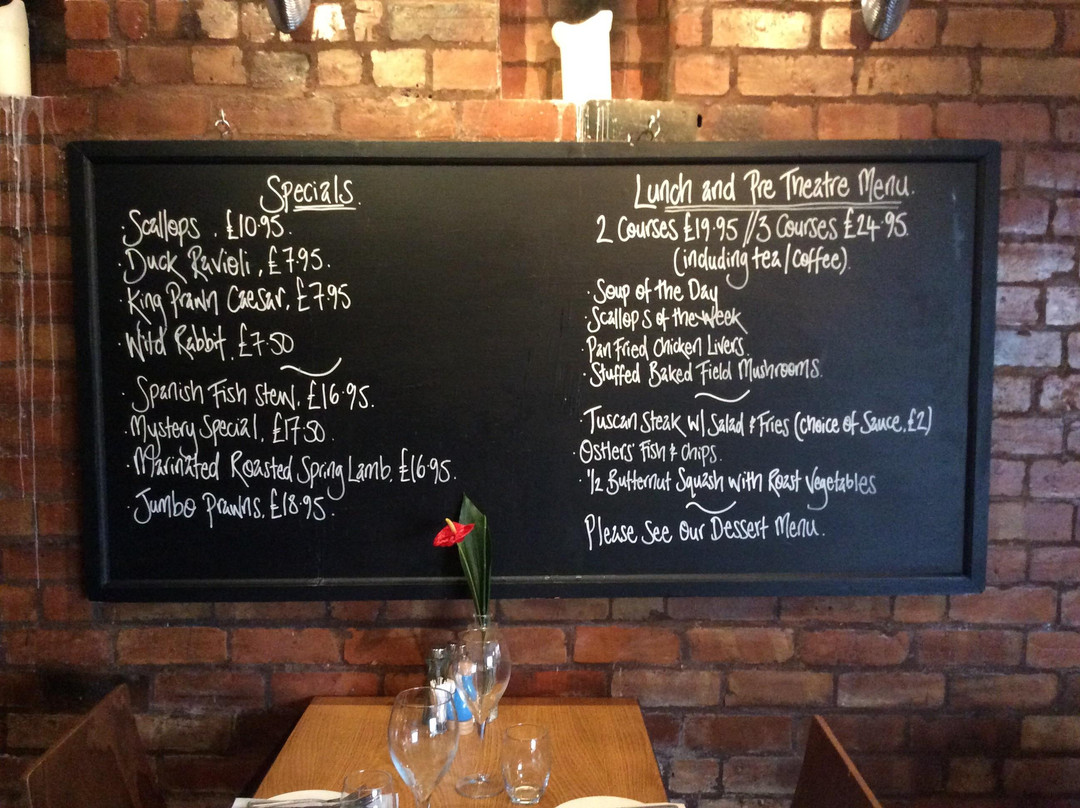 Specials.
· Scallops . £10.95.
· Duck Ravioli, £7.95.
· King Prawn Caesar, £7.95
· Wild Rabbit, £7.50
· Spanish Fish Stew, £16.95.
· Mystery Special, £17.50.
· Marinated Roasted Spring Lamb, £16.95.
· Jumbo Prawns, £18.95.
Lunch and Pre Theatre Menu.
2 Courses £19.95 // 3 Courses £24.95.
(including tea/coffee).
· Soup of the Day
· Scallops of the week
· Pan Fried Chicken Livers.
· Stuffed Baked Field Mushrooms.
· Tuscan Steak w/ Salad & Fries (choice of Sauce, £2)
· Ostlers' Fish & Chips.
· 1/2 Butternut Squash with Roast Vegetables
Please See our Dessert Menu.